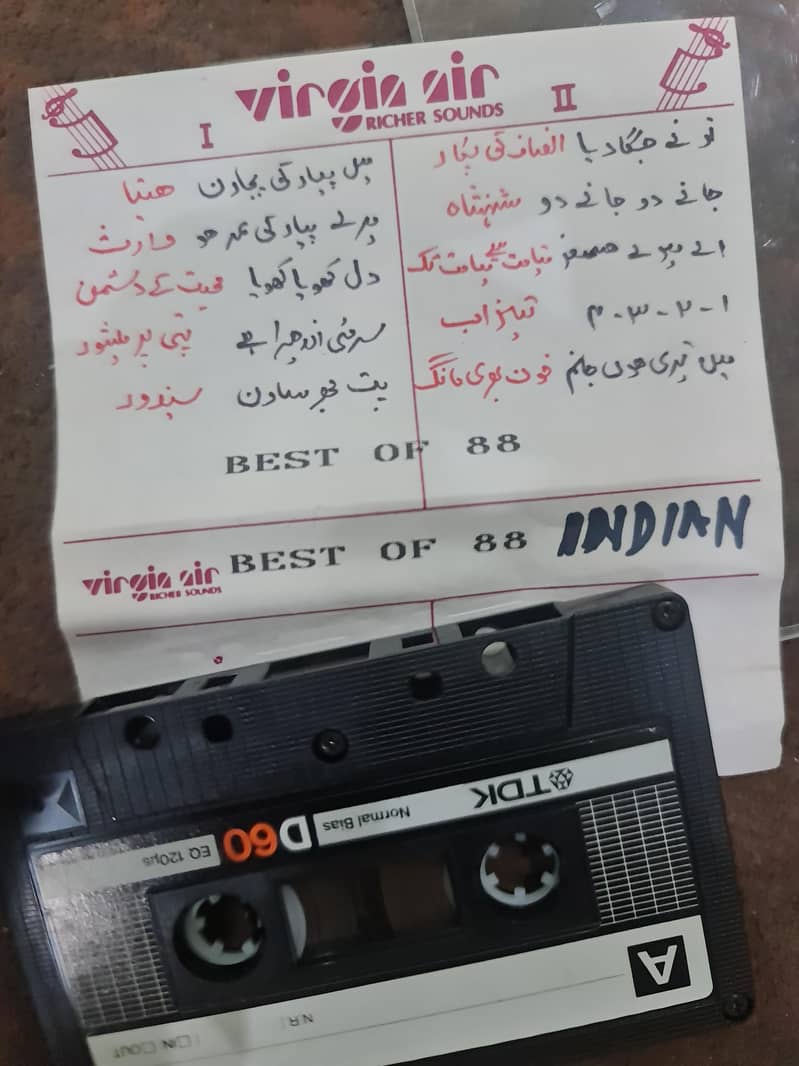 virgin air
RICHER SOUNDS
I
II
میں پیار کی پجارن ہتیا
میرے پیار کی عمر ہو وارث
دل کھویا کھویا محبت کے دشمن
سرمئی اندھیرا ہے پتی پرمیشور
پت جھڑ ساون سندور
تو نے جگا دیا انصاف کی پکار
جانے دو جانے دو شہنشاہ
اے میرے ہمسفر قیامت سے قیامت تک
۱-۲-۳-۴ تیزاب
میں تیری ہوں جانم خون بھری مانگ
BEST OF 88
virgin air
RICHER SOUNDS
BEST OF 88 INDIAN
TDK
D60 Normal Bias
EQ 120µs
A
N.R.
IN OUT